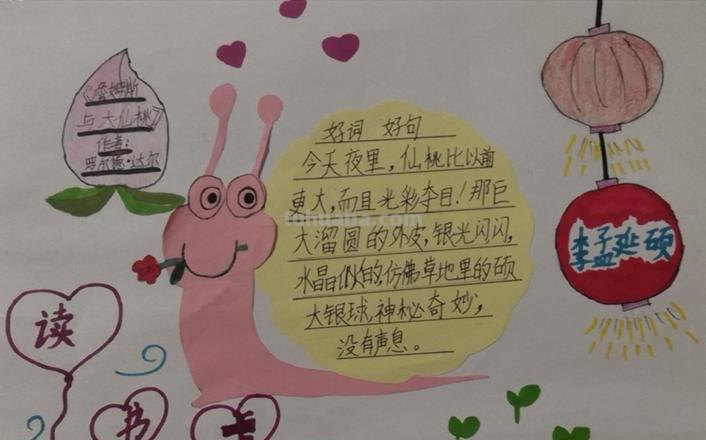 《詹姆斯
与大仙桃》
作者：
罗尔德·达尔
好词 好句
今天夜里，仙桃比以前
更大，而且光彩夺目！那巨
大溜圆的外皮，银光闪闪，
水晶似的，仿佛草地里的硕
大银球，神秘奇妙，
没有声息。
李孟延硕
读
书
卡